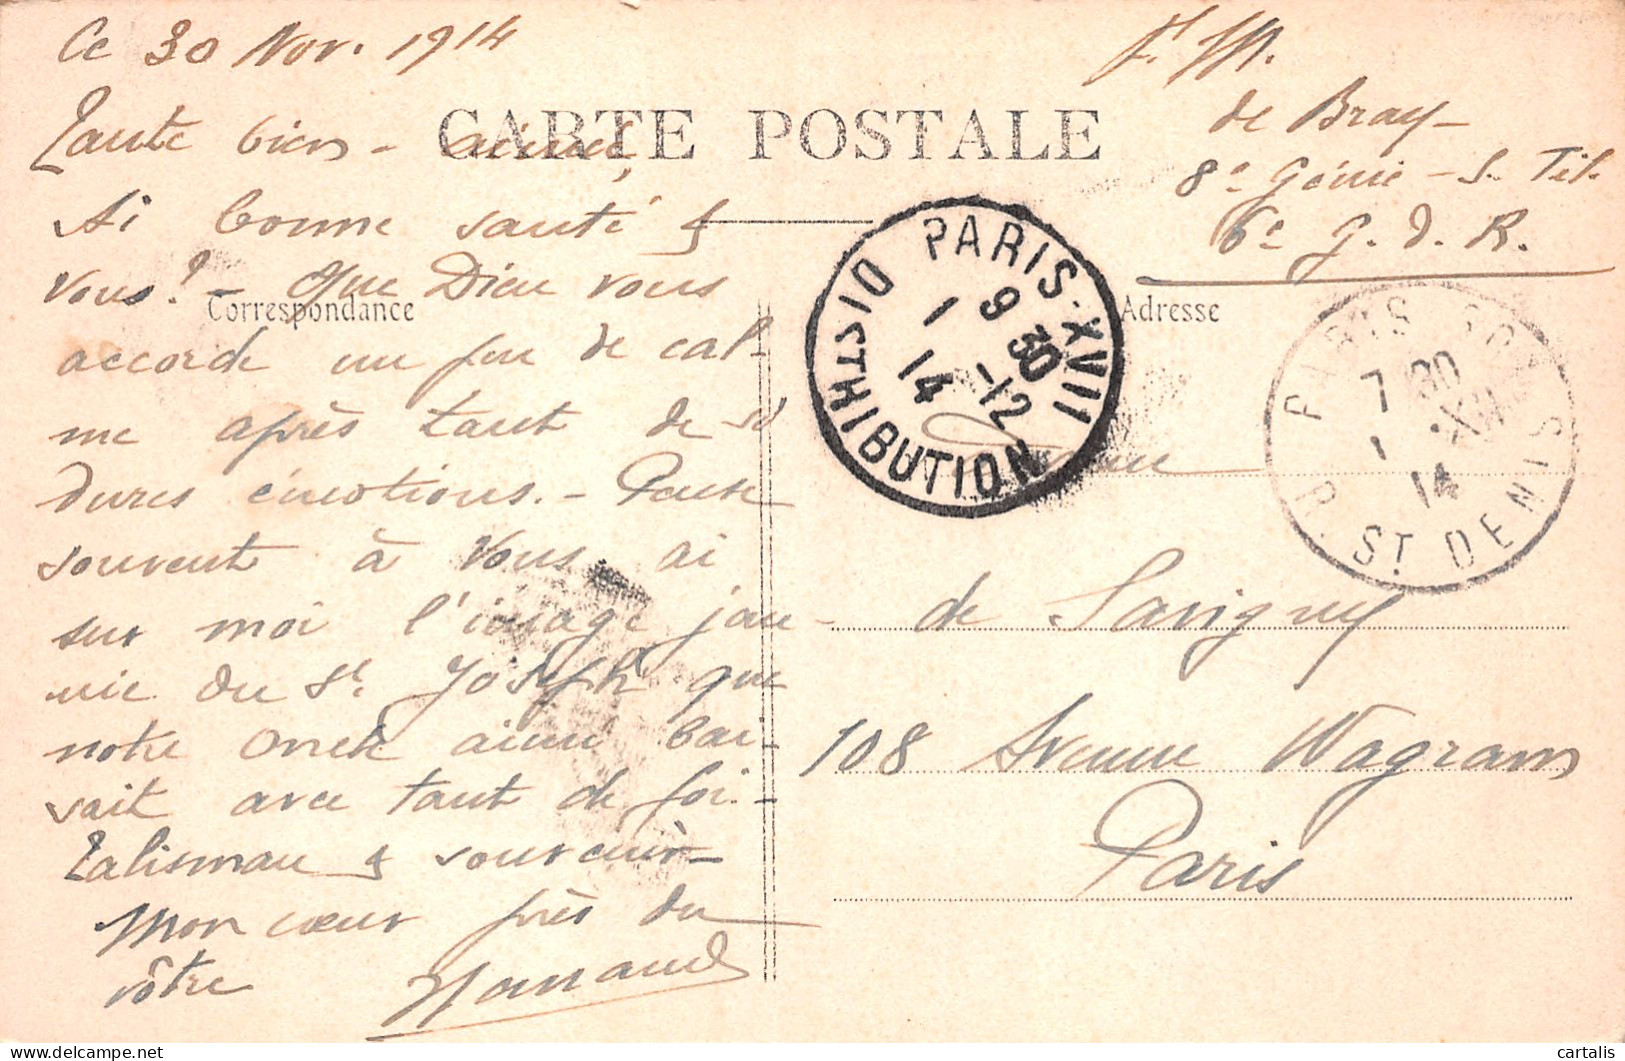 Ce 30 Nov. 1914
Tante bien-aimée,
Ai bonne santé &
vous? - Que Dieu vous
accorde un peu de cal-
me après tant de si
dures émotions. - Pense
souvent à Vous ai
sur moi l'image jau-
nie du St. Joseph que
notre Oncle aimé bai-
sait avec tant de foi. -
Talisman & souvenir -
Mon cœur près du
vôtre
CARTE POSTALE
Correspondance
Adresse
F. M.
de Bray -
8e Génie - S. Tél.
6e G. d. R.
PARIS-XVII
DISTRIBUTION
9 30
1 -12
14
PARIS
R. ST. DENIS
7 30
1 XII
14
de Savigny
108 Avenue Wagram
Paris
cartalis